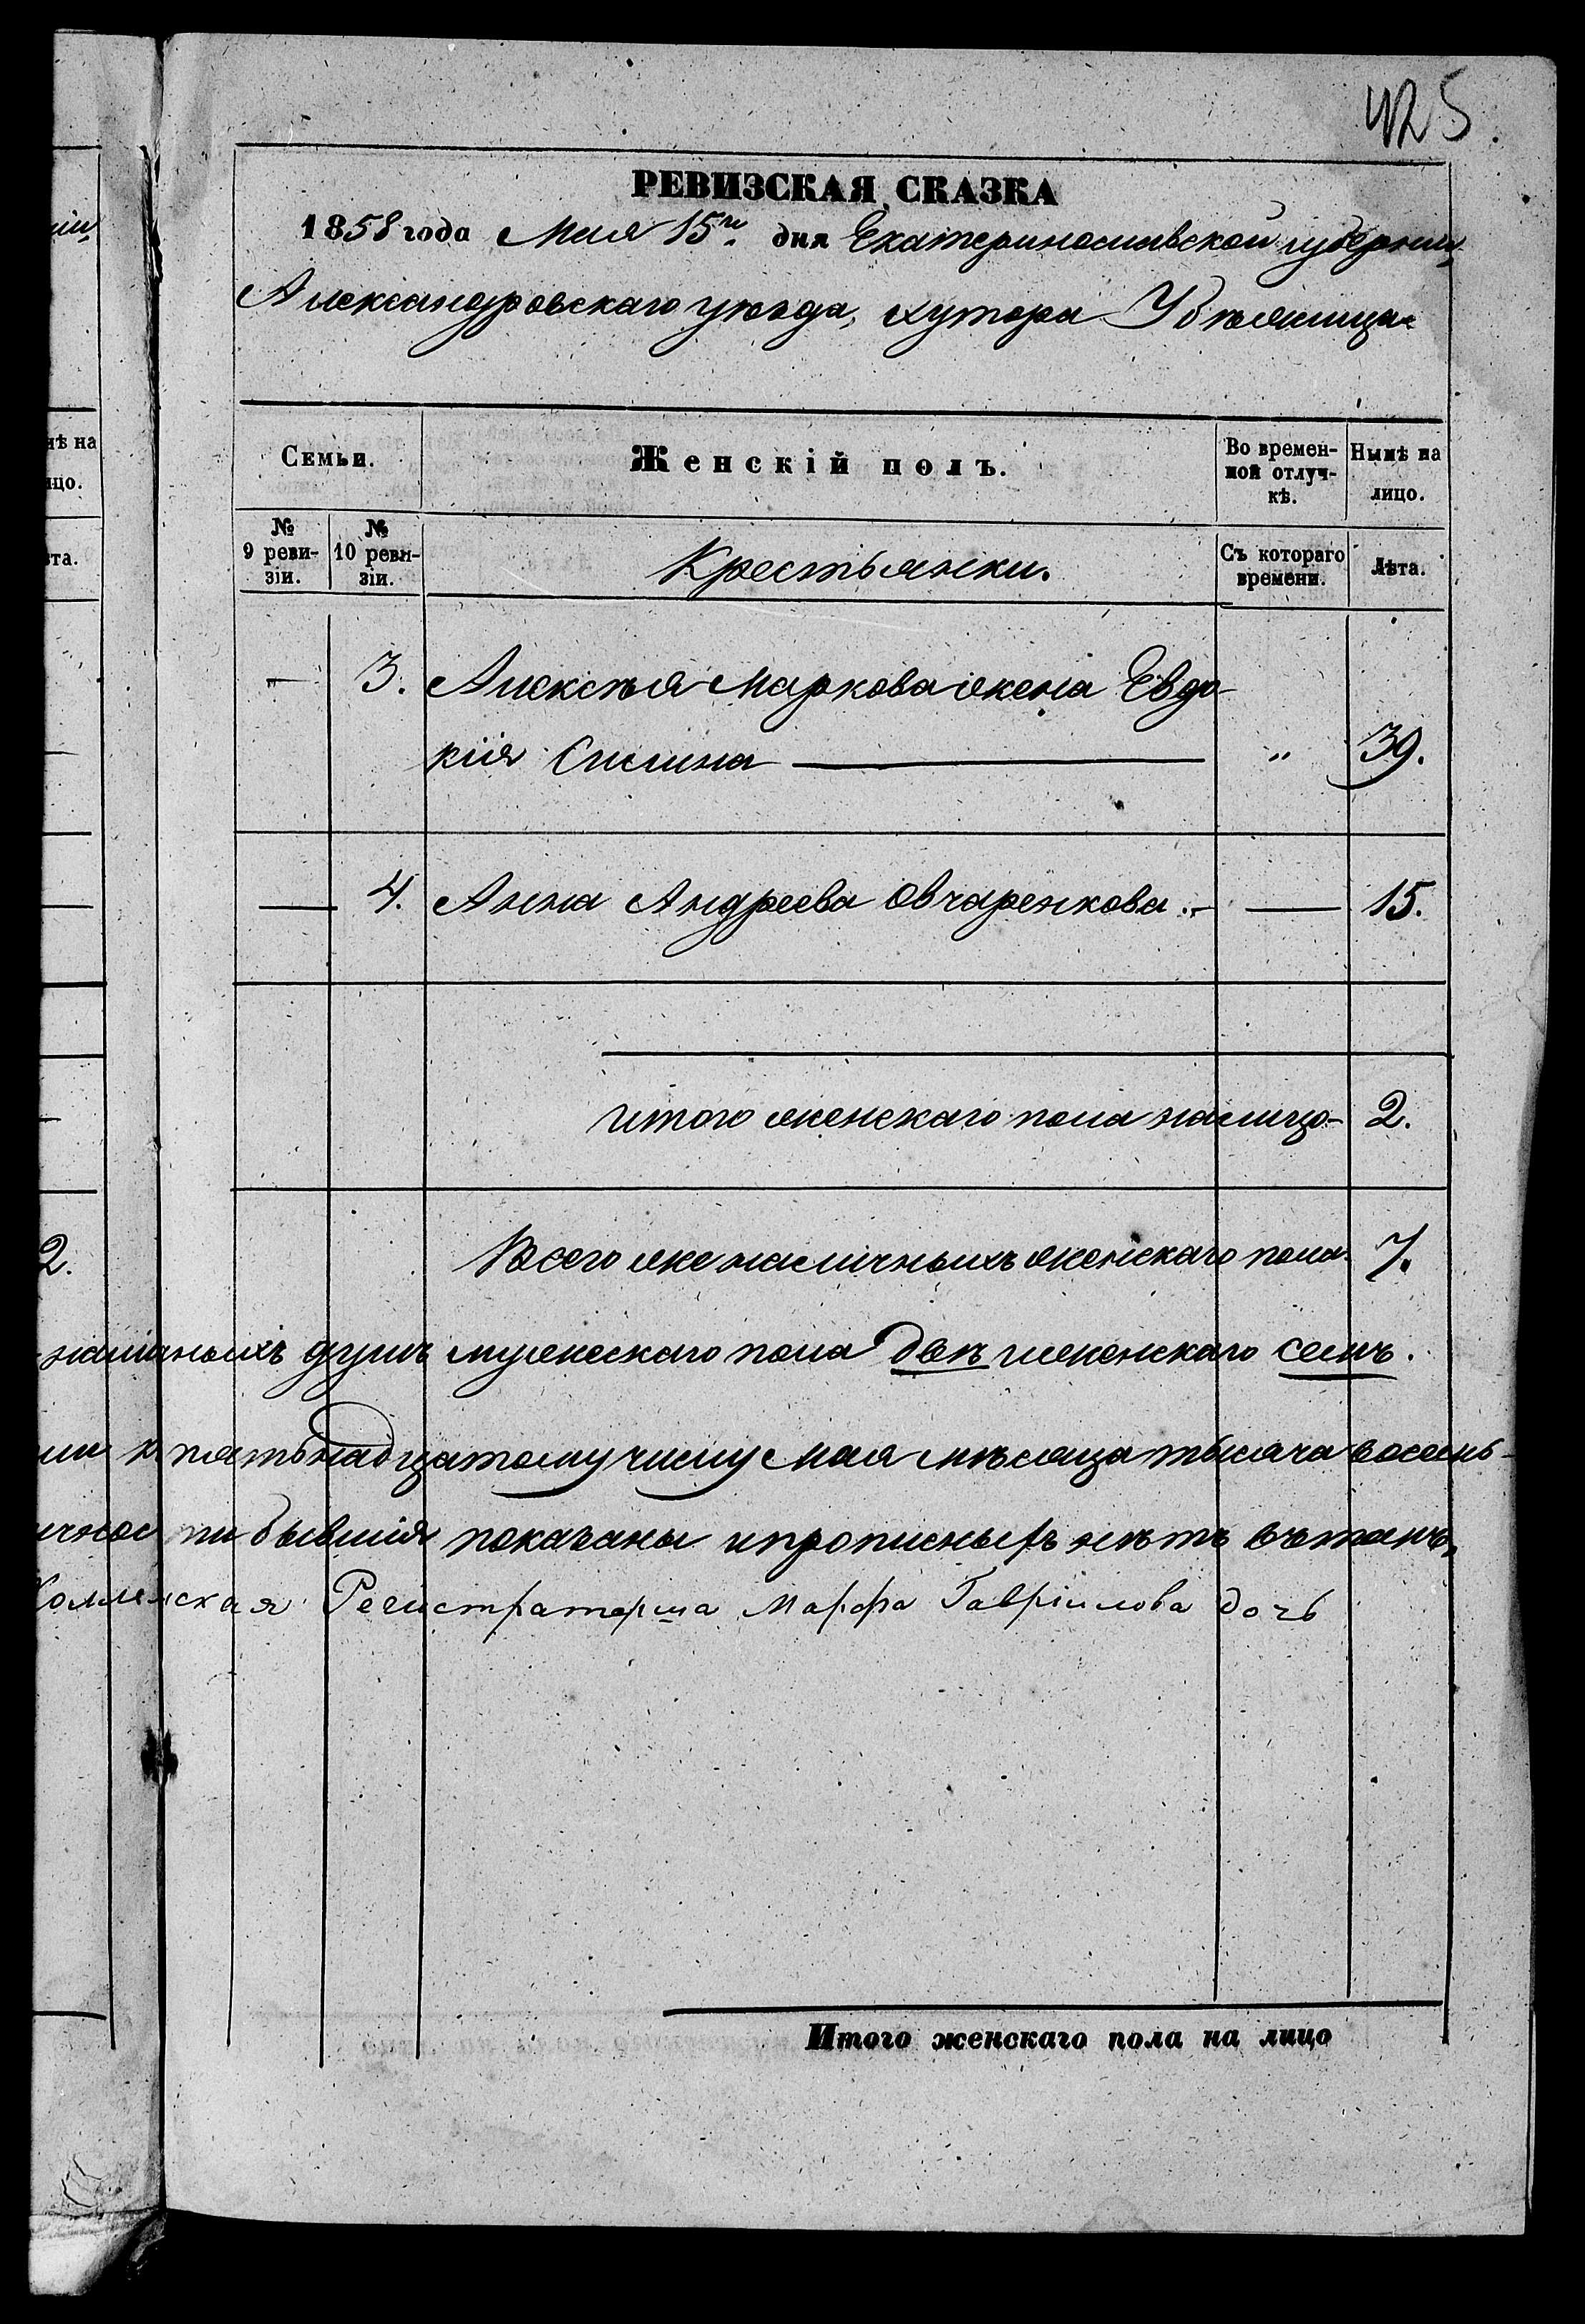 425.
РЕВИЗСКАЯ СКАЗКА
1858 года Мая 15го дня Екатеринославской губерніи,
Александровскаго уѣзда, хутора Убѣжища
Семьи.
Женскій полъ.
Во времен-
ной отлуч-
кѣ.
Нынѣ на
лицо.
№
9 реви-
зіи.
№
10 реви-
зіи.
Крестьянки.
Съ котораго
времени.
Лѣта.
— 3. Алексѣя Маркова жена Евдо-
кія " 39.
— 4. Анна Андреева Овчаренкова. — 15.
итого женскаго пола налицо 2.
Всего же наличныхъ женскаго пола 7.
наличныхъ душъ мужескаго пола двѣ и женскаго семь.
к пятьнадцатому числу Мая мѣсяца тысяча восемь-
бывшія показаны и прописныхъ нѣтъ въ томъ,
Регистраторша Марфа Гавріилова дочь
Итого женскаго пола на лицо
нѣ на
ицо.
ѣта.
2.